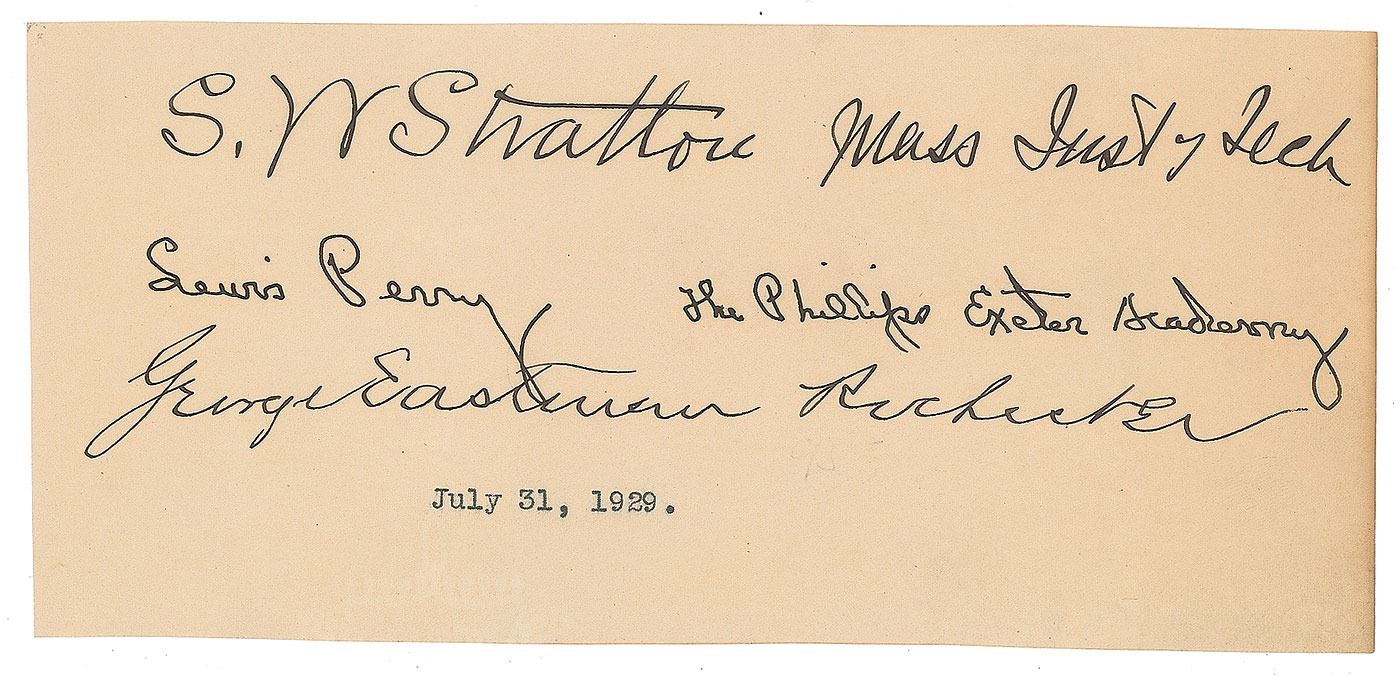 S. W Stratton Mass Inst of Tech
Lewis Perry The Phillips Exeter Academy
George Eastman Rochester
July 31, 1929.